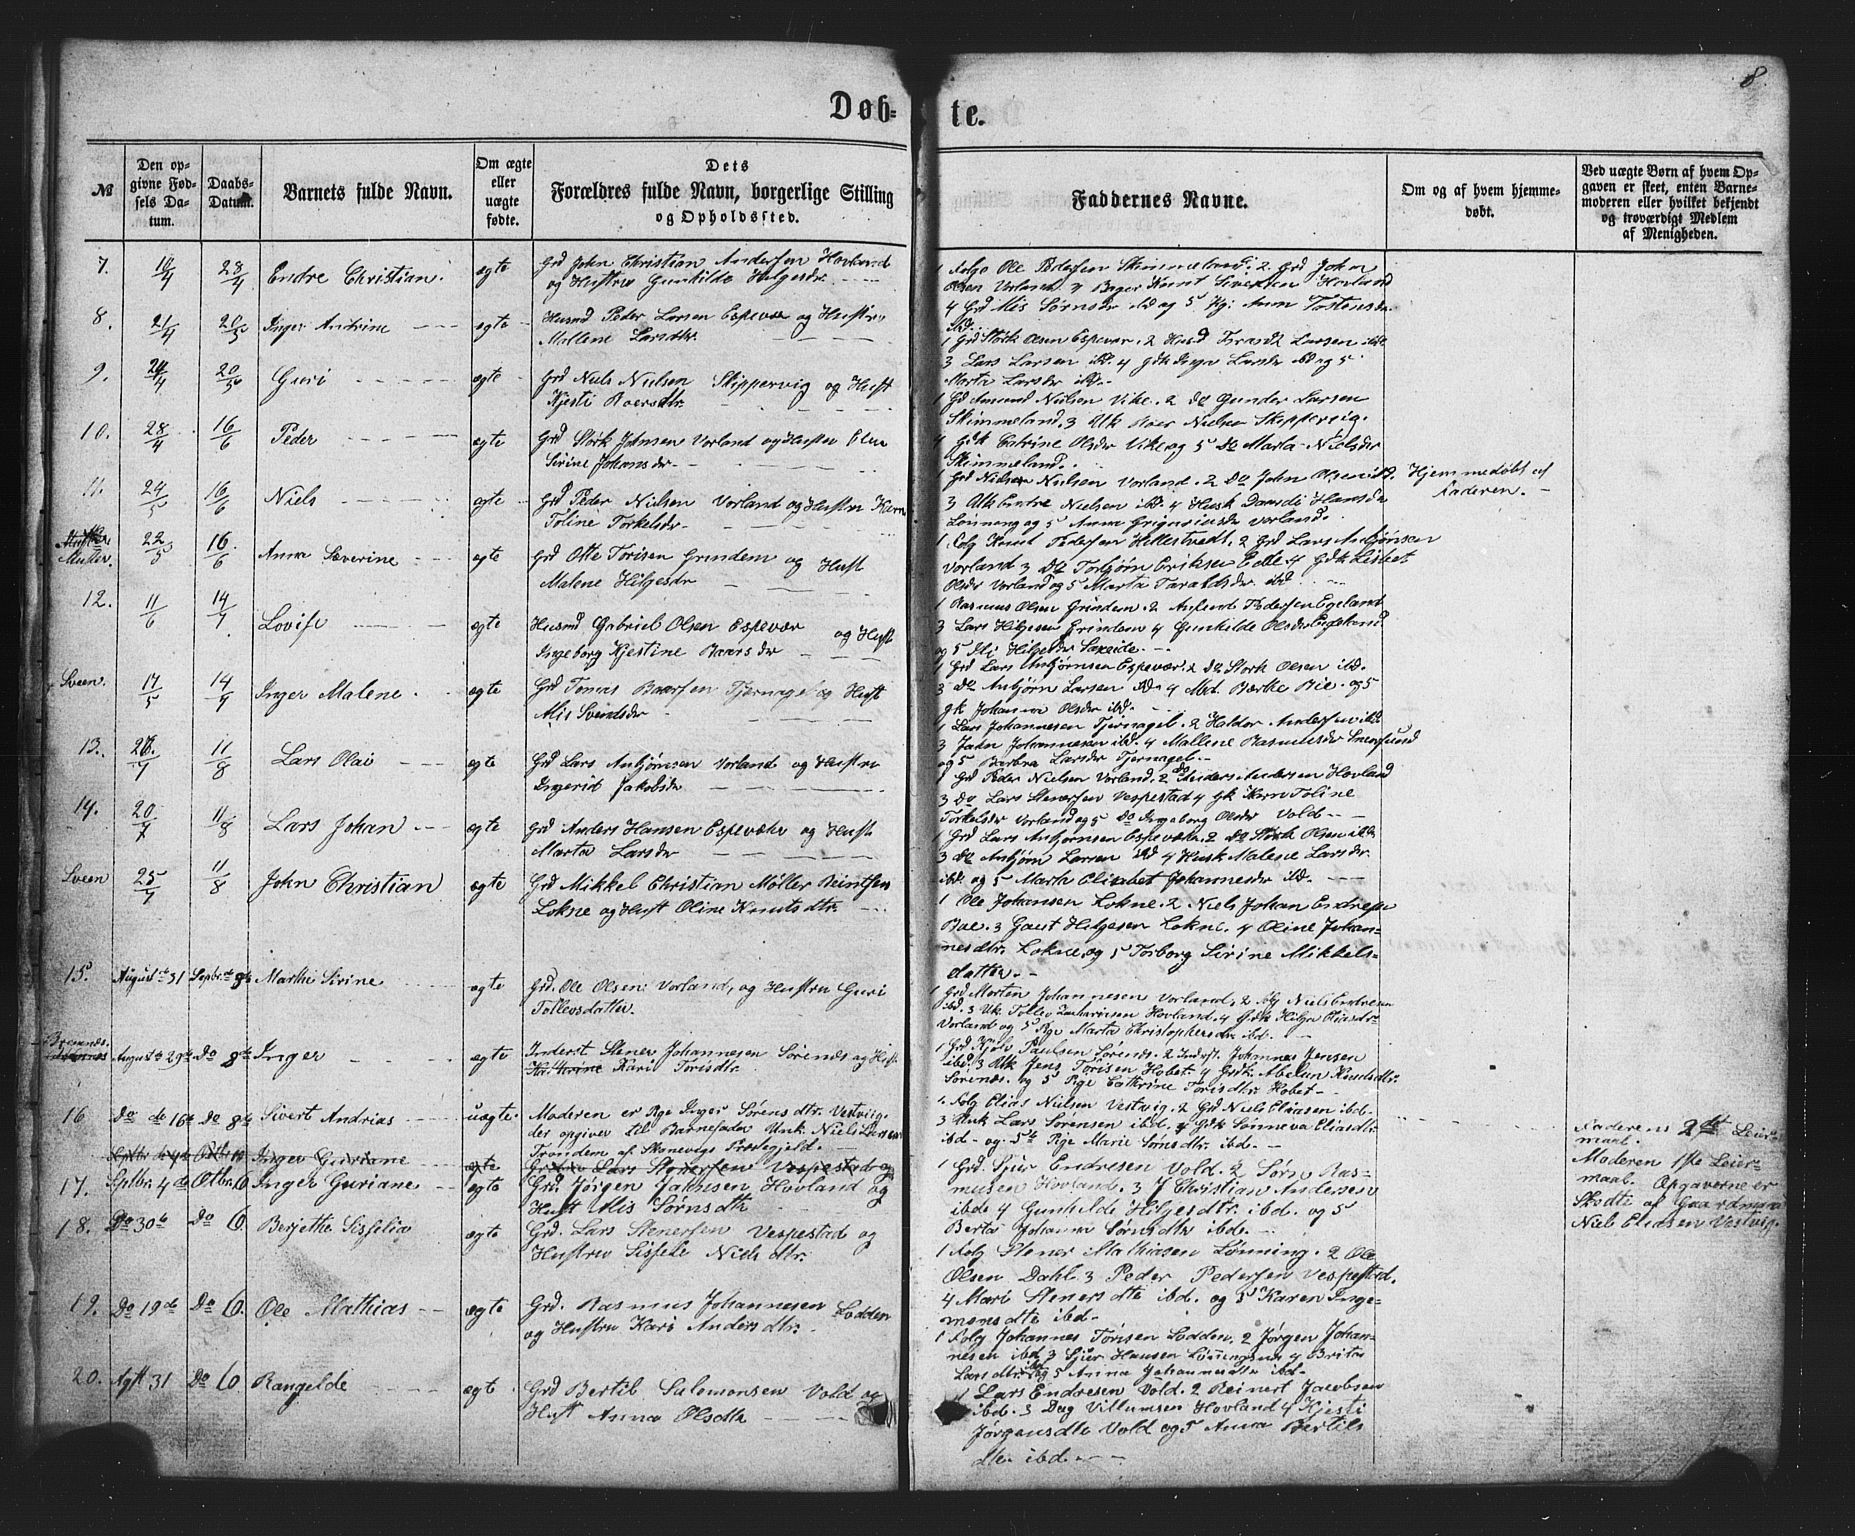 8.
Døb-
te.
№
Den op-
givne Fød-
sels Da-
tum.
Daabs-
Datum.
Barnets fulde Navn.
Om ægte
eller
uægte
fødte.
Dets
Forældres fulde Navn, borgerlige Stilling
og Opholdssted.
Faddernes Navne.
Om og af hvem hjemme-
døbt.
Ved uægte Børn af hvem Op-
gaven er skeet, enten Barne-
moderen eller hvilket bekjendt
og troværdigt Medlem
af Menigheden.
7. 28/4 Endre Christian. ægte Grd John Christian Andersen Hovland
og Hustru Gunhilde Helgesdr.
1 Ole Pedersen Skimmeland. 2 Grd John
Olsen Vorland. Knut Sivertsen Hovland
4 Grd Nils Sørnsdr ibd og 5 Pg. Anna Tostensdr
ibd.
8. 21/4 20/5 Inger Andrine ægte Husmd Peder Larsen Espevær og Hustru
Mallene Larsdtr
1 Grd Størk Olsen Espevær, 2 Husmd Larsen ibd.
3 Lars Larsen ibd. 4 Gdk Larsdr ibd og 5
Marta Larsdr ibd.
9. 24/4 20/5 Guri ægte Grd Niels Nielsen Skippervig og Hust
Kjesti Roersdtr.
1 Gd Amund Nielsen Vike. 2 do Gunder Larsen
Skimmeland. 3 Uk Roer Nielsen Skippervig.
4 Gdk Catrine Olsdr Vike og 5 Do Marta Nielsdr
Skimmeland.
10. 28/4 16/6 Peder ægte Grd Størk Johnsen Vorland og Hustru Elen
Serine Johansdr
1 Grd Nielsen Vorland. 2 Do John Olsen ibd.
3 Uk Endre Nielsen ibd 4 Husk Hansdr
Lønning og 5 Anna Vorland.
Hjemmedøbt af
Faderen.
11. 24/5 16/6 Niels ægte Grd Peder Nielsen Vorland og Hustru Karn
Toline Torkelsdr
1 Folg Knud Pedersen Hillestvedt, 2 Grd Lars Anbjørnsen
Vorland 3 Do Torbjørn Eriksen Eide 4 Gdk Lisbet
Olsdr Vorland og 5 Marta Taraldsdr ibd
Muster. 22/5 16/6 Anna Severine ægte Grd Otte Torisen Grindem og Hust
Malene Helgesdr
1 Rasmus Olsen Grindem. 2 Pedersen Egeland
3 Lars Helgesen Grindem 4 Gunhilde Olsdr Egeland
og 5 Helgesdr Saxeide.
12. 11/6 14/7 Lovise ægte Husmd Gabriel Olsen Espevær og Hust
Ingeborg Kjestine Baarsdr
1 Grd Lars Anbjørnsen Espevær. 2 Do Størk Olsen ibd.
3 Do Anbjørn Larsen ibd. 4 Mad. Bærke Bie. og 5
gk Johanna Olsdr ibd.
Sveen. 17/5 14/7 Inger Malene ægte Grd Tomas Baarsen Tjernagel og Hust
Alis Svendsdr
1 Lars Johannesen Tjernagel. 2 Haldor Andersen ibd
3 John Johannesen ibd. 4 Mallene Rasmusdr
og 5 Barbra Larsdr Tjernagel.
13. 26/7 11/8 Lars Olai ægte Grd Lars Anbjørnsen Vorland og Hustru
Ingerid Jakobsdr
1 Grd Peder Nielsen Vorland, 2 do Anders Andersen Hovland
3 Do Lars Stenersen Vespestad 4 gk Karn Toline
Torkelsdr Vorland og 5 Do Ingeborg Olsdr Vold
14. 20/7 11/8 Lars Johan ægte Grd Anders Hansen Espevær og Hust
Marta Larsdr
1 Grd Lars Anbjørnsen Espevær. 2 Do Størk Olsen ibd.
3 Do Anbjørn Larsen ibd 4 Husk Malene Larsdr
ibd. og 5 Marta Elisabet Johannesdr ibd.
Sveen 25/7 11/8 John Christian ægte Grd Mikkel Christian Møller Reintsen
Lokne og Hust Oline Knutsdtr.
1 Ole Johansen Lokne. 2 Niels Johan Endresen
Boe. 3 Gaut Helgesen Lokne. 4 Oline Johan-
nesdtr. Lokne og 5 Torborg Serine Mikkels-
datter.
15. August 31 Sepbr. 8de Marthe Serine ægte Grd. Ole Olsen Vorland, og Hustru Guri
Tollevsdatter.
1 Grd Morten Johannesen Vorland, 2 Niels Endresen
ibd. 3 Uk. Tollev Zachariasen Hovland, 4 Gdk Helga Eliasdr
Vorland og 5 Pge Marta Christophersdr ibd.
Bremnæs. August 29de Do 8de Inger ægte Inderst Stener Johannesen Sørenæs og Hust
Kari Torisdtr.
1 Grd Paulsen Sørenæs. 2 Inderst. Johannes Jensen
ibd. 3 Uk Jens Torisen Hobet 4 Grdk. Abelun Knudsdtr.
Sørenæs. og 5 Pge Cathrine Torisdtr. Hobet
16 Do do 16de Do 8de Sivert Andrias uægte Moderen er Pge Inger Sørensdtr. Vestvig.
der opgiver til Barnefader Unk. Niels Larsen
Trondem af Skonevigs Præstegjeld.
1. Folg Elias Nielsen Vestvig. 2 Grd Niels Eliasen ibd.
3 Unk Lars Sørensen ibd. 4 Gdk Sønneva Eliasdtr.
ibd og 5te Pge Marie Sørnsdtr. ibd.
Faderens 2det Leier-
maal.
Moderen 1ste Leier-
maal. Opgaverne er
Skedte af Gaardmand
Niels Eliasen Vestvig.
Inger Guriane ægte Lars Stenersen Vespestad og
17. Septbr. 4de Otbr. 6 Inger Guriane ægte Grd. Jørgen Johnsen Hovland og
Hust Alis Sørnsdtr
1 Grd. Sjur Endresen Vold. 2 Sørn Ras-
musen Hovland. 3 J Christian Andersen
ibd 4 Gunhilde Helgesdtr. ibd. og 5
Berta Johanna Sørnsdtr ibd.
18. Do 30te Do 6. Berjette Sisselia ægte Grd. Lars Stenersen Vespestad og
Hustru Sissele Nielsdtr.
1 Folg Stener Mathiasen Lønning. 2 Ole
Olsen Dahl. 3 Peder Pedersen Vespestad.
4 Mari Stenersdtr ibd. og 5 Karen Inge-
monsdtr ibd.
19. Do 19de Do 6. Ole Mathias ægte Grd. Rasmus Johannesen Lodden
og Hustru Kari Andersdtr.
1 Folg Johannes Torisen Lodden, 2 Jørgen Johan-
nesen ibd. 3 Sjur Hansen 4 Brita
Larsdtr. ibd og 5 Anna Johannesdtr ibd.
20. Agst 31 Do 6. Rangelde ægte Grd Bertil Salomonsen Vold og
Hust Anna Olsdtr
1 Lars Endresen Vold. 2 Reinert Jacobsen
ibd. 3 Dag Villumsen Hovland 4 Kjesti
Jørgensdtr Vold og 5 Anna Bertils
dtr. ibd.